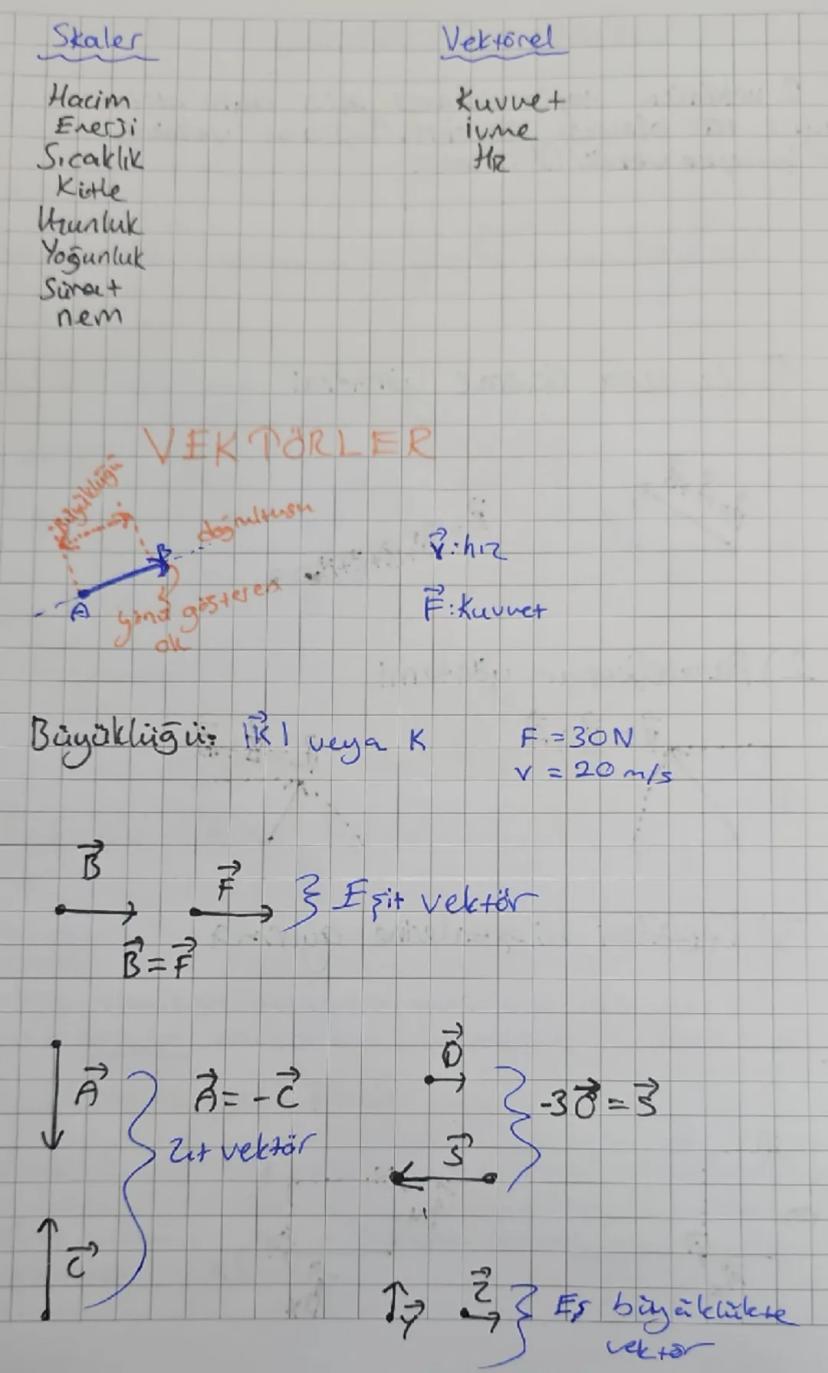 Skaler
Hacim
Enerji
Sıcaklık
Kütle
Uzunluk
Yoğunluk
Sürat
nem
Vektörel
Kuvvet
ivme
Hız
VEKTÖRLER
Büyüklüğü
doğrultusu
A
B
yönü gösteren
ok
v⃗: hız
F⃗: Kuvvet
Büyüklüğü: |K⃗| veya K
F = 30N
v = 20 m/s
B⃗
F⃗
} Eşit vektör
B⃗ = F⃗
A⃗
A⃗ = -C⃗
Zıt vektör
C⃗
O⃗
-3O⃗ = S⃗
S⃗
Y⃗
Z⃗
} Eş büyüklükte
vektör